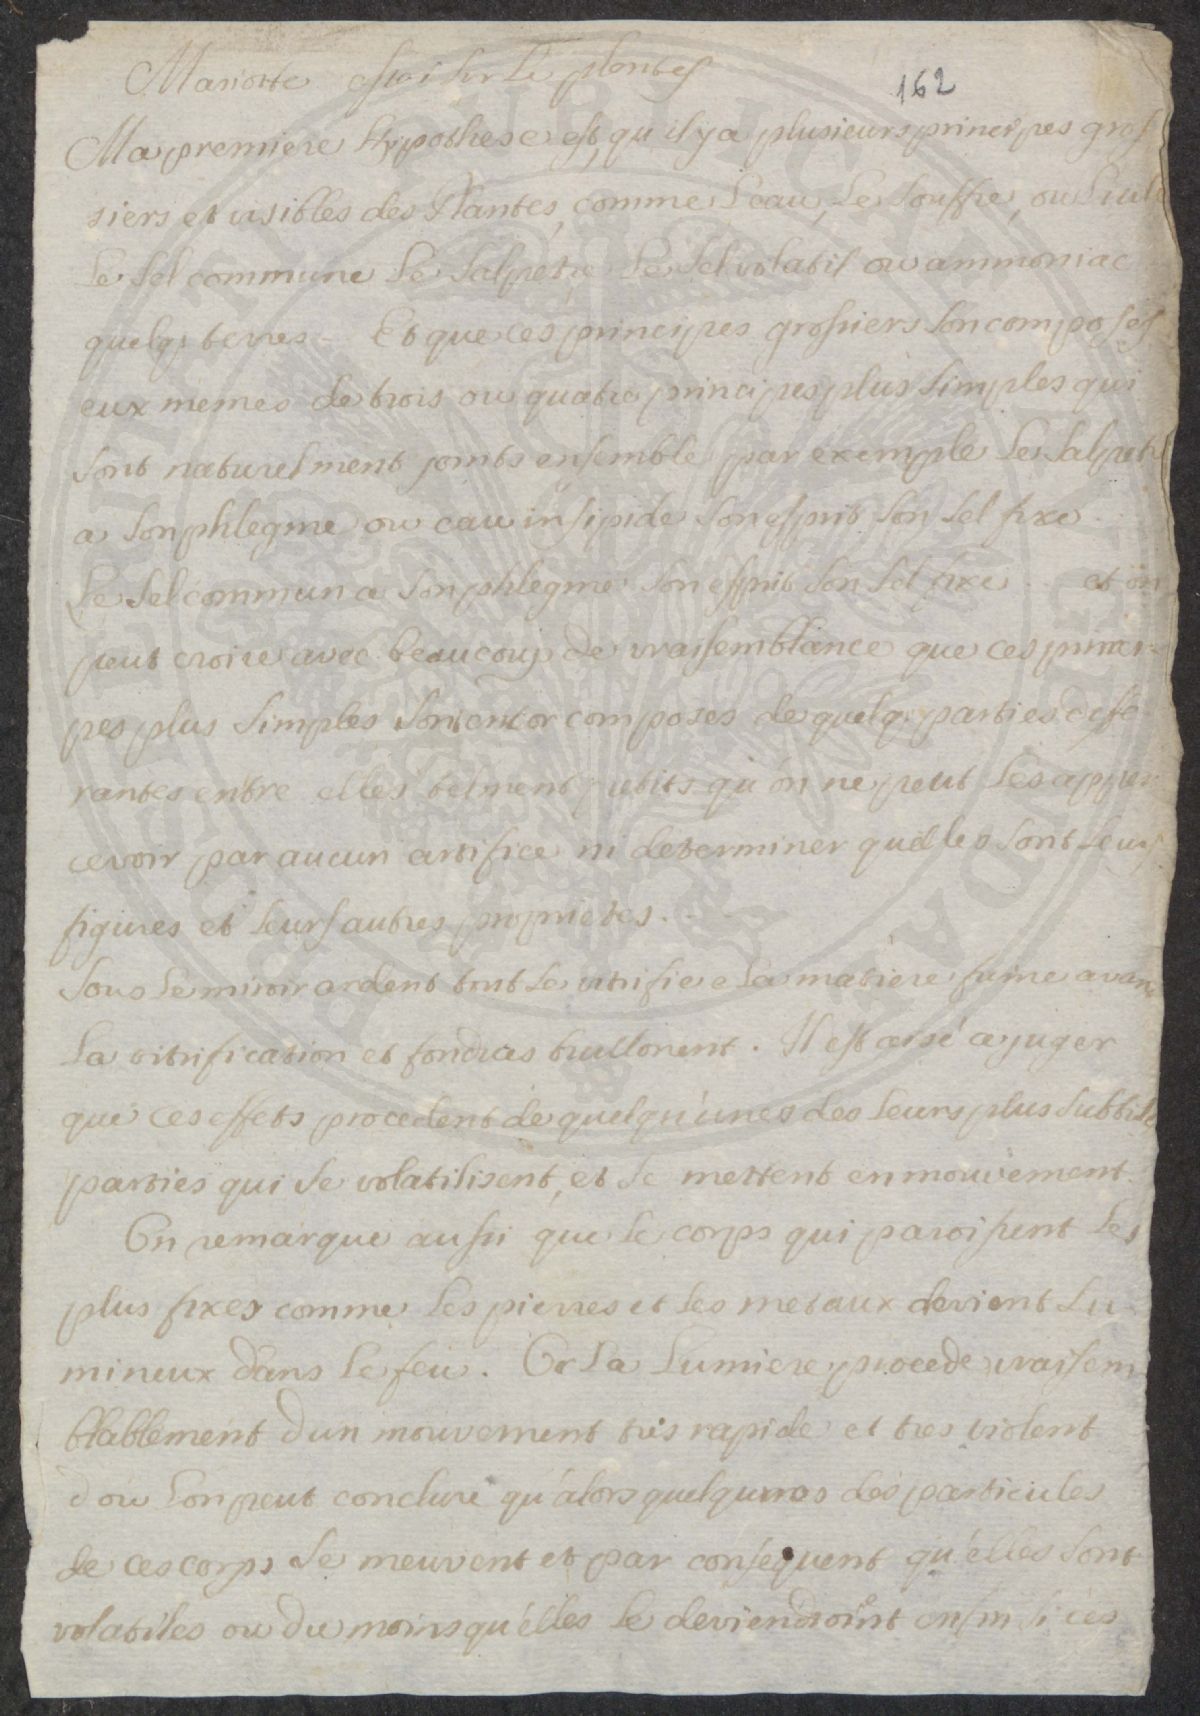 Mariotte essai sur le plantes
162
Ma premiere Hypothese est, qu il y a plusieurs principes gros
siers et visibles des Plantes, comme l'eau, le souffre, ou l'uile
le sel commune le salpetre le sel volatil ou ammoniac
quelq; terres - Et que ces principes grossiers son composes
eux mémes de trois ou quatre principes plus simples qui
sont naturelment joints ensemble par exemple le salpetre
a son phlegme ou eau insipide son esprit son sel fixe
Le sel commun a son phlegme son esprit son sel fixe .. et on
peut croire avec beaucoup de vraisemblance que ces princi-
pes plus simples sont encor composes de quelq; parties diffe
rantes entre elles telment petits qu'on ne peut les apper
cevoir par aucun artifice ni determiner quelles sont leurs
figures et leurs autres proprietes. - -
Sous le miroir ardent tout se vitrifie e la matiere fume avant
la vitrification et bullonent. Il est aisé a juger
que ces effets procedent de quelqu'unes des leurs plus subtiles
parties qui se volatilisent, et se mettent en mouvement.
On remarque aussi que le corps qui paroissent les
plus fixes comme les pierres et les metaux devient lu-
mineux dans le feu. Or la lumiere procede vraisem
blablement d'un mouvement tres rapide et tres violent
d'ou l'on peut conclure qu'alors quelqunes des particules
de ces corps se meuvent et par consequent qu'elles sont
volatiles ou du moins qu'elles le deviendroint enfin si ces